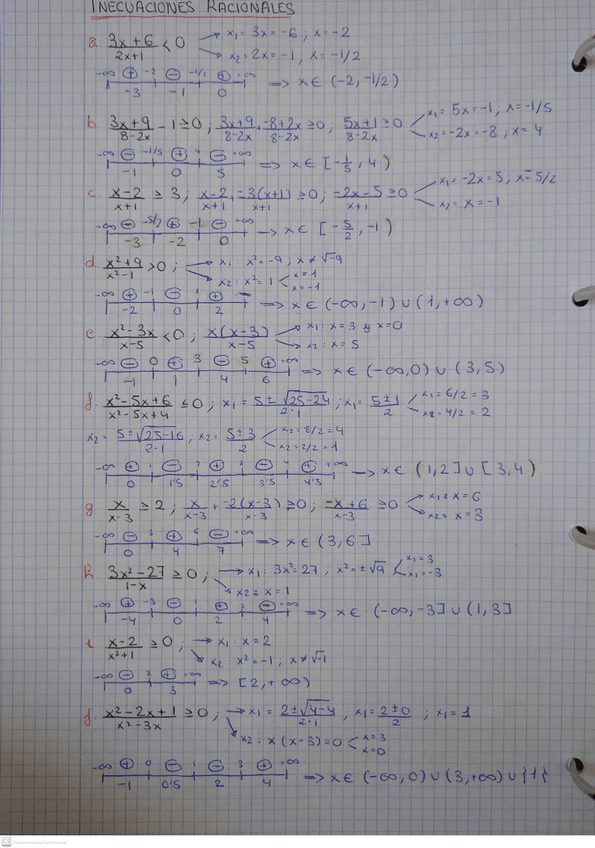 INECUACIONES RACIONALES
a. (3x+6)/(2x+1) < 0 → x₁ = 3x = -6 ; x = -2
→ x₂ = 2x = -1 , x = -1/2
-∞ ⊕ -2 ⊖ -1/2 ⊕ +∞ ⇒ x ∈ (-2, -1/2)
-3 -1 0
b. (3x+9)/(8-2x) - 1 ≥ 0 ; (3x+9)/(8-2x) + (-8+2x)/(8-2x) ≥ 0 ; (5x+1)/(8-2x) ≥ 0 x₁ = 5x = -1 ; x = -1/5
x₂ = -2x = -8 ; x = 4
-∞ ⊖ -1/5 ⊕ 4 ⊖ +∞ ⇒ x ∈ [-1/5, 4)
-1 0 5
c. (x-2)/(x+1) ≥ 3 ; (x-2)/(x+1) + (-3(x+1))/(x+1) ≥ 0 ; (-2x-5)/(x+1) ≥ 0 x₁ = -2x = 5 , x = 5/2
x₂ = x = -1
-∞ ⊖ -5/2 ⊕ -1 ⊖ +∞ → x ∈ [-5/2, -1)
-3 -2 0
d. (x²+9)/(x²-1) > 0 ; → x₁ x² = -9 ; x ≠ √-9
→ x₂ : x² = 1 x = 1
x = -1
-∞ ⊕ -1 ⊖ 1 ⊕ ⇒ x ∈ (-∞, -1) ∪ (1, +∞)
-2 0 2
e. (x²-3x)/(x-5) < 0 ; x(x-3)/(x-5) → x₁ x = 3 y x = 0
→ x₂ : x = 5
-∞ ⊖ 0 ⊕ 3 ⊖ 5 ⊕ +∞ ⇒ x ∈ (-∞, 0) ∪ (3, 5)
-1 1 4 6
f. (x²-5x+6)/(x²-5x+4) ≤ 0 ; x₁ = (5±√(25-24))/(2·1) ; x₁ = (5±1)/2 x₁ = 6/2 = 3
x₂ = 4/2 = 2
x₂ = (5±√(25-16))/(2·1) ; x₂ = (5±3)/2 x₂ = 8/2 = 4
x₂ = 2/2 = 1
-∞ ⊕ 1 ⊖ 2 ⊕ 3 ⊖ 4 ⊕ +∞ → x ∈ (1,2] ∪ [3,4)
0 1'5 2'5 3'5 4'3
g. x/(x-3) ≥ 2 ; x/(x-3) + (-2(x-3))/(x-3) ≥ 0 ; (-x+6)/(x-3) ≥ 0 x₁ = x = 6
x₂ = x = 3
-∞ ⊖ 3 ⊕ 6 ⊖ +∞ ⇒ x ∈ (3, 6]
0 4 7
h. (3x²-27)/(1-x) ≥ 0 ; → x₁ : 3x² = 27 ; x² = ±√9 x₁ = 3
x₁ = -3
x₂ = x = 1
-∞ ⊕ -3 ⊖ 1 ⊕ 3 ⊖ +∞ ⇒ x ∈ (-∞, -3] ∪ (1, 3]
-4 0 2 4
i. (x-2)/(x²+1) ≥ 0 ; → x₁ : x = 2
x₂ : x² = -1 ; x ≠ √-1
-∞ ⊖ 2 ⊕ +∞ ⇒ [2, +∞)
0 3
j. (x²-2x+1)/(x²-3x) ≥ 0 ; → x₁ = (2±√(4-4))/(2·1) , x₁ = (2±0)/2 ; x₁ = 1
x₂ : x(x-3) = 0 x = 3
x = 0
-∞ ⊕ 0 ⊖ 1 ⊖ 3 ⊕ +∞ ⇒ x ∈ (-∞, 0) ∪ (3, +∞) ∪ {1}
-1 0'5 2 4
CS